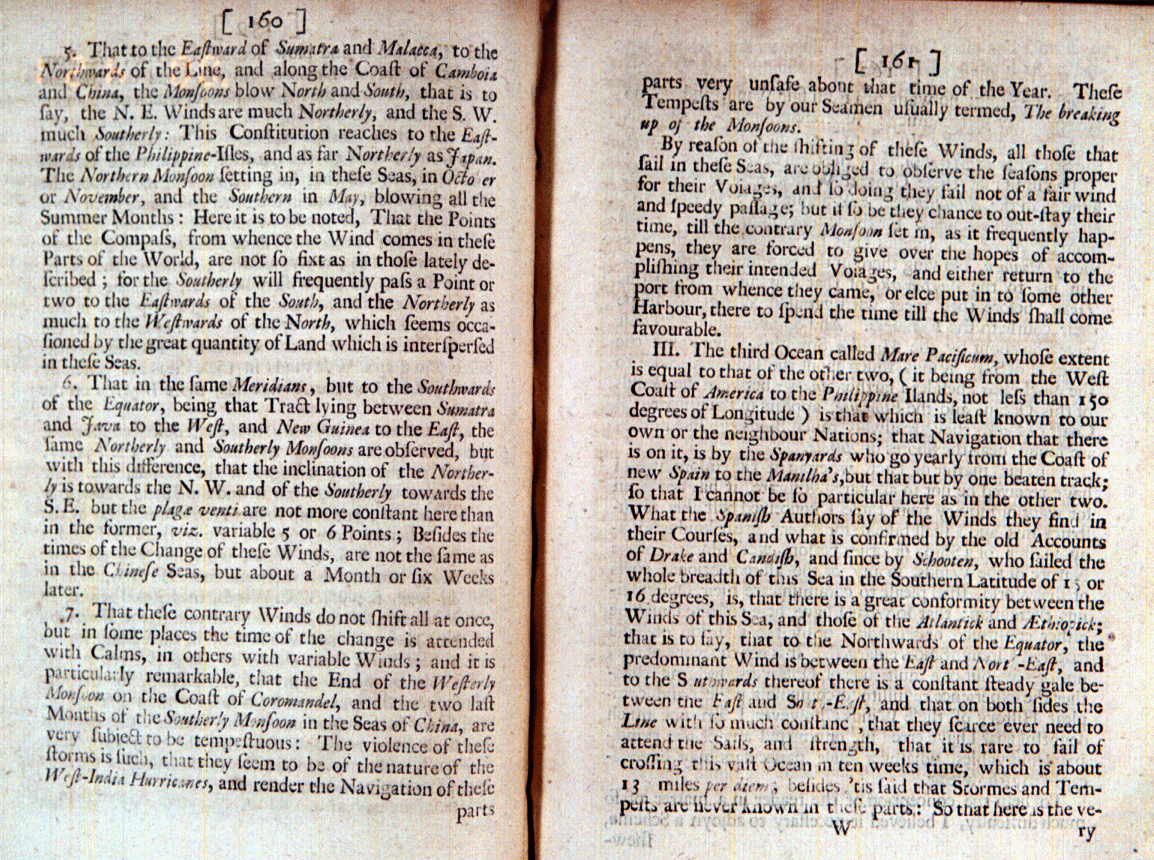 [ 160 ]
5. That to the Eaſtward of Sumatra and Malacca, to the
Northwards of the Line, and along the Coaſt of Camboia
and China, the Monſoons blow North and South, that is to
ſay, the N. E. Winds are much Northerly, and the S. W.
much Southerly: This Conſtitution reaches to the Eaſt-
wards of the Philippine-Iſles, and as far Northerly as Japan.
The Northern Monſoon ſetting in, in theſe Seas, in Octo er
or November, and the Southern in May, blowing all the
Summer Months: Here it is to be noted, That the Points
of the Compaſs, from whence the Wind comes in theſe
Parts of the World, are not ſo fixt as in thoſe lately de-
ſcribed; for the Southerly will frequently paſs a Point or
two to the Eaſtwards of the South, and the Northerly as
much to the Weſtwards of the North, which ſeems occa-
ſioned by the great quantity of Land which is interſperſed
in theſe Seas.
6. That in the ſame Meridians, but to the Southwards
of the Equator, being that Tract lying between Sumatra
and Java to the Weſt, and New Guinea to the Eaſt, the
ſame Northerly and Southerly Monſoons are obſerved, but
with this difference, that the inclination of the Norther-
ly is towards the N. W. and of the Southerly towards the
S. E. but the plagæ venti are not more conſtant here than
in the former, viz. variable 5 or 6 Points; Beſides the
times of the Change of theſe Winds, are not the ſame as
in the Chineſe Seas, but about a Month or ſix Weeks
later.
7. That theſe contrary Winds do not ſhift all at once,
but in ſome places the time of the change is attended
with Calms, in others with variable Winds; and it is
particularly remarkable, that the End of the Weſterly
Monſoon on the Coaſt of Coromandel, and the two laſt
Months of the Southerly Monſoon in the Seas of China, are
very ſubject to be tempeſtuous: The violence of theſe
ſtorms is ſuch, that they ſeem to be of the nature of the
Weſt-India Hurricanes, and render the Navigation of theſe
parts
[ 161 ]
parts very unſafe about that time of the Year. Theſe
Tempeſts are by our Seamen uſually termed, The breaking
up of the Monſoons.
By reaſon of the ſhifting of theſe Winds, all thoſe that
ſail in theſe Seas, are obliged to obſerve the ſeaſons proper
for their Voiages, and ſo doing they fail not of a fair wind
and ſpeedy paſſage; but if ſo be they chance to out-ſtay their
time, till the contrary Monſoon ſet in, as it frequently hap-
pens, they are forced to give over the hopes of accom-
pliſhing their intended Voiages, and either return to the
port from whence they came, or elſe put in to ſome other
Harbour, there to ſpend the time till the Winds ſhall come
favourable.
III. The third Ocean called Mare Pacificum, whoſe extent
is equal to that of the other two, ( it being from the Weſt
Coaſt of America to the Philippine Ilands, not leſs than 150
degrees of Longitude ) is that which is leaſt known to our
own or the neighbour Nations; that Navigation that there
is on it, is by the Spanyards who go yearly from the Coaſt of
new Spain to the Manilha's, but that but by one beaten track;
ſo that I cannot be ſo particular here as in the other two.
What the Spaniſh Authors ſay of the Winds they find in
their Courſes, and what is confirmed by the old Accounts
of Drake and Candiſh, and ſince by Schooten, who ſailed the
whole breadth of this Sea in the Southern Latitude of 15 or
16 degrees, is, that there is a great conformity between the
Winds of this Sea, and thoſe of the Atlantick and Æthiopick;
that is to ſay, that to the Northwards of the Equator, the
predominant Wind is between the Eaſt and Nort -Eaſt, and
to the S uthwards thereof there is a conſtant ſteady gale be-
tween the Eaſt and Sout -Eaſt, and that on both ſides the
Line with ſo much conſtanc , that they ſcarce ever need to
attend the Sails, and ſtrength, that it is rare to fail of
croſſing this vaſt Ocean in ten weeks time, which is about
13 miles per diem; beſides 'tis ſaid that Stormes and Tem-
peſts are never known in theſe parts: So that here is the ve-
W ry